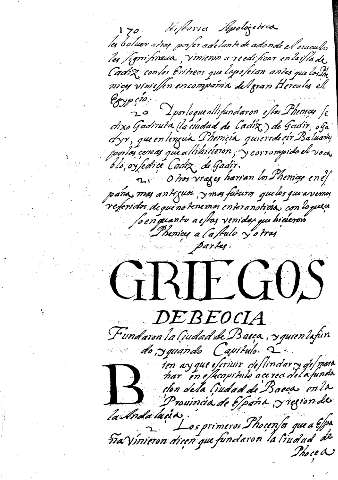 170 Historia Apologetica
les bolver atras passar adelante de adonde el oraculo
les significava, y vinieron a reedificar en la isla de
Cadiz con los Eritreos que la poseian antes que los
viniessen en compañia del gran Hercules el
Egypcio.
20 Y por lo que alli fundaron estos Phenices se
dixo Gadiruta la ciudad de Cadiz, y de Gadir, o
que en lengua Phenicia quiere decir Baluarte
por las cercas que alli hicieron, y corrompido el voca
blo, oy se dice Cadiz de Gadir.
21 Otro viages harian los Phenices en es
paña, mas antiguos, y mas futuros que los que avemos
referidos de que no tenemos entera noticia, con lo que
en quanto a estas venidas que hicieron
Phenices a Castulo y otras
partes.
GRIEGOS
DE BEOCIA
Fundaron la Ciudad de Baeça, y quien la fun
do, y quando Capitulo. 2.
Bien ay que escrivir deslindar y desmara
ñar en este capitulo acerca de la funda
cion de la Ciudad de Baeça en la
Provincia de España, y region de
la Andalucia.
2 Los primeros Phocenses que a Espa
ña vinieron dicen que fundaron la Ciudad de
Phoçea